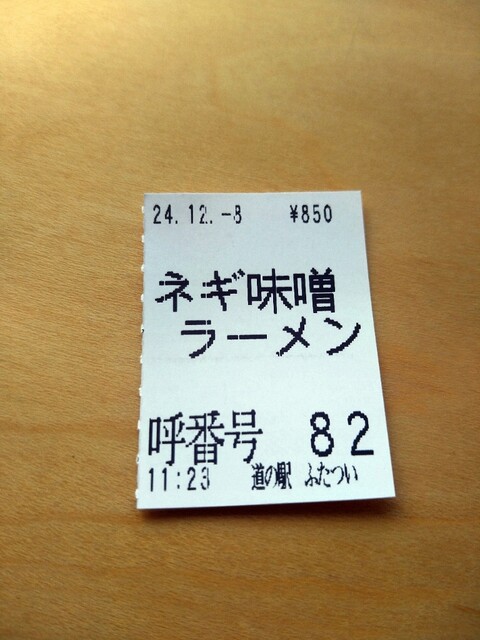 24.12.-8 ¥850
ネギ味噌
ラーメン
呼番号 82
11:23 道の駅 ふたつい